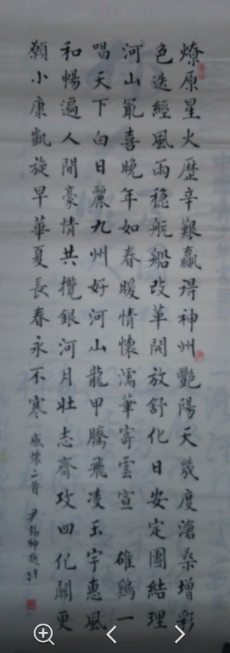 燎原星火歷辛艱贏得神州艷陽天幾度滄桑增彩
色迭經風雨穩航船改革開放舒化日安定團結理
河山最喜晚年如春暖情懷濡華寄雲宣 雄鷄一
唱天下白日麗九州好河山龍甲騰飛凌玉宇惠風
和暢遍人間豪情共攬銀河月壯志齊攻四化關更
願小康凱旋早華夏長春永不寒
感懷二首 尹